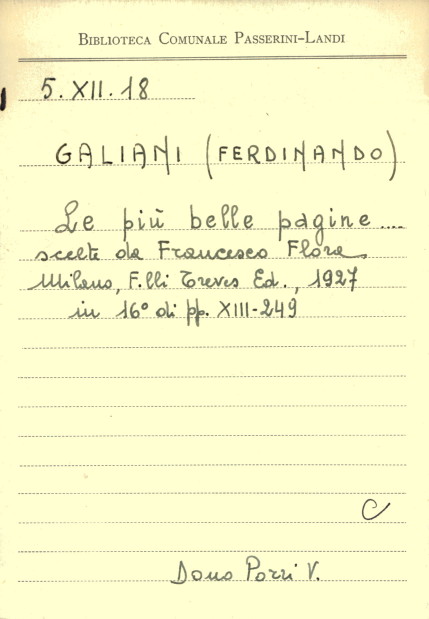 BIBLIOTECA COMUNALE PASSERINI-LANDI
5. XII. 18
GALIANI (FERDINANDO)
Le più belle pagine....
scelte da Francesco Flora
Milano, F.lli Treves Ed., 1927
in 16° di pp. XIII-249
C
Dono Pozzi V.